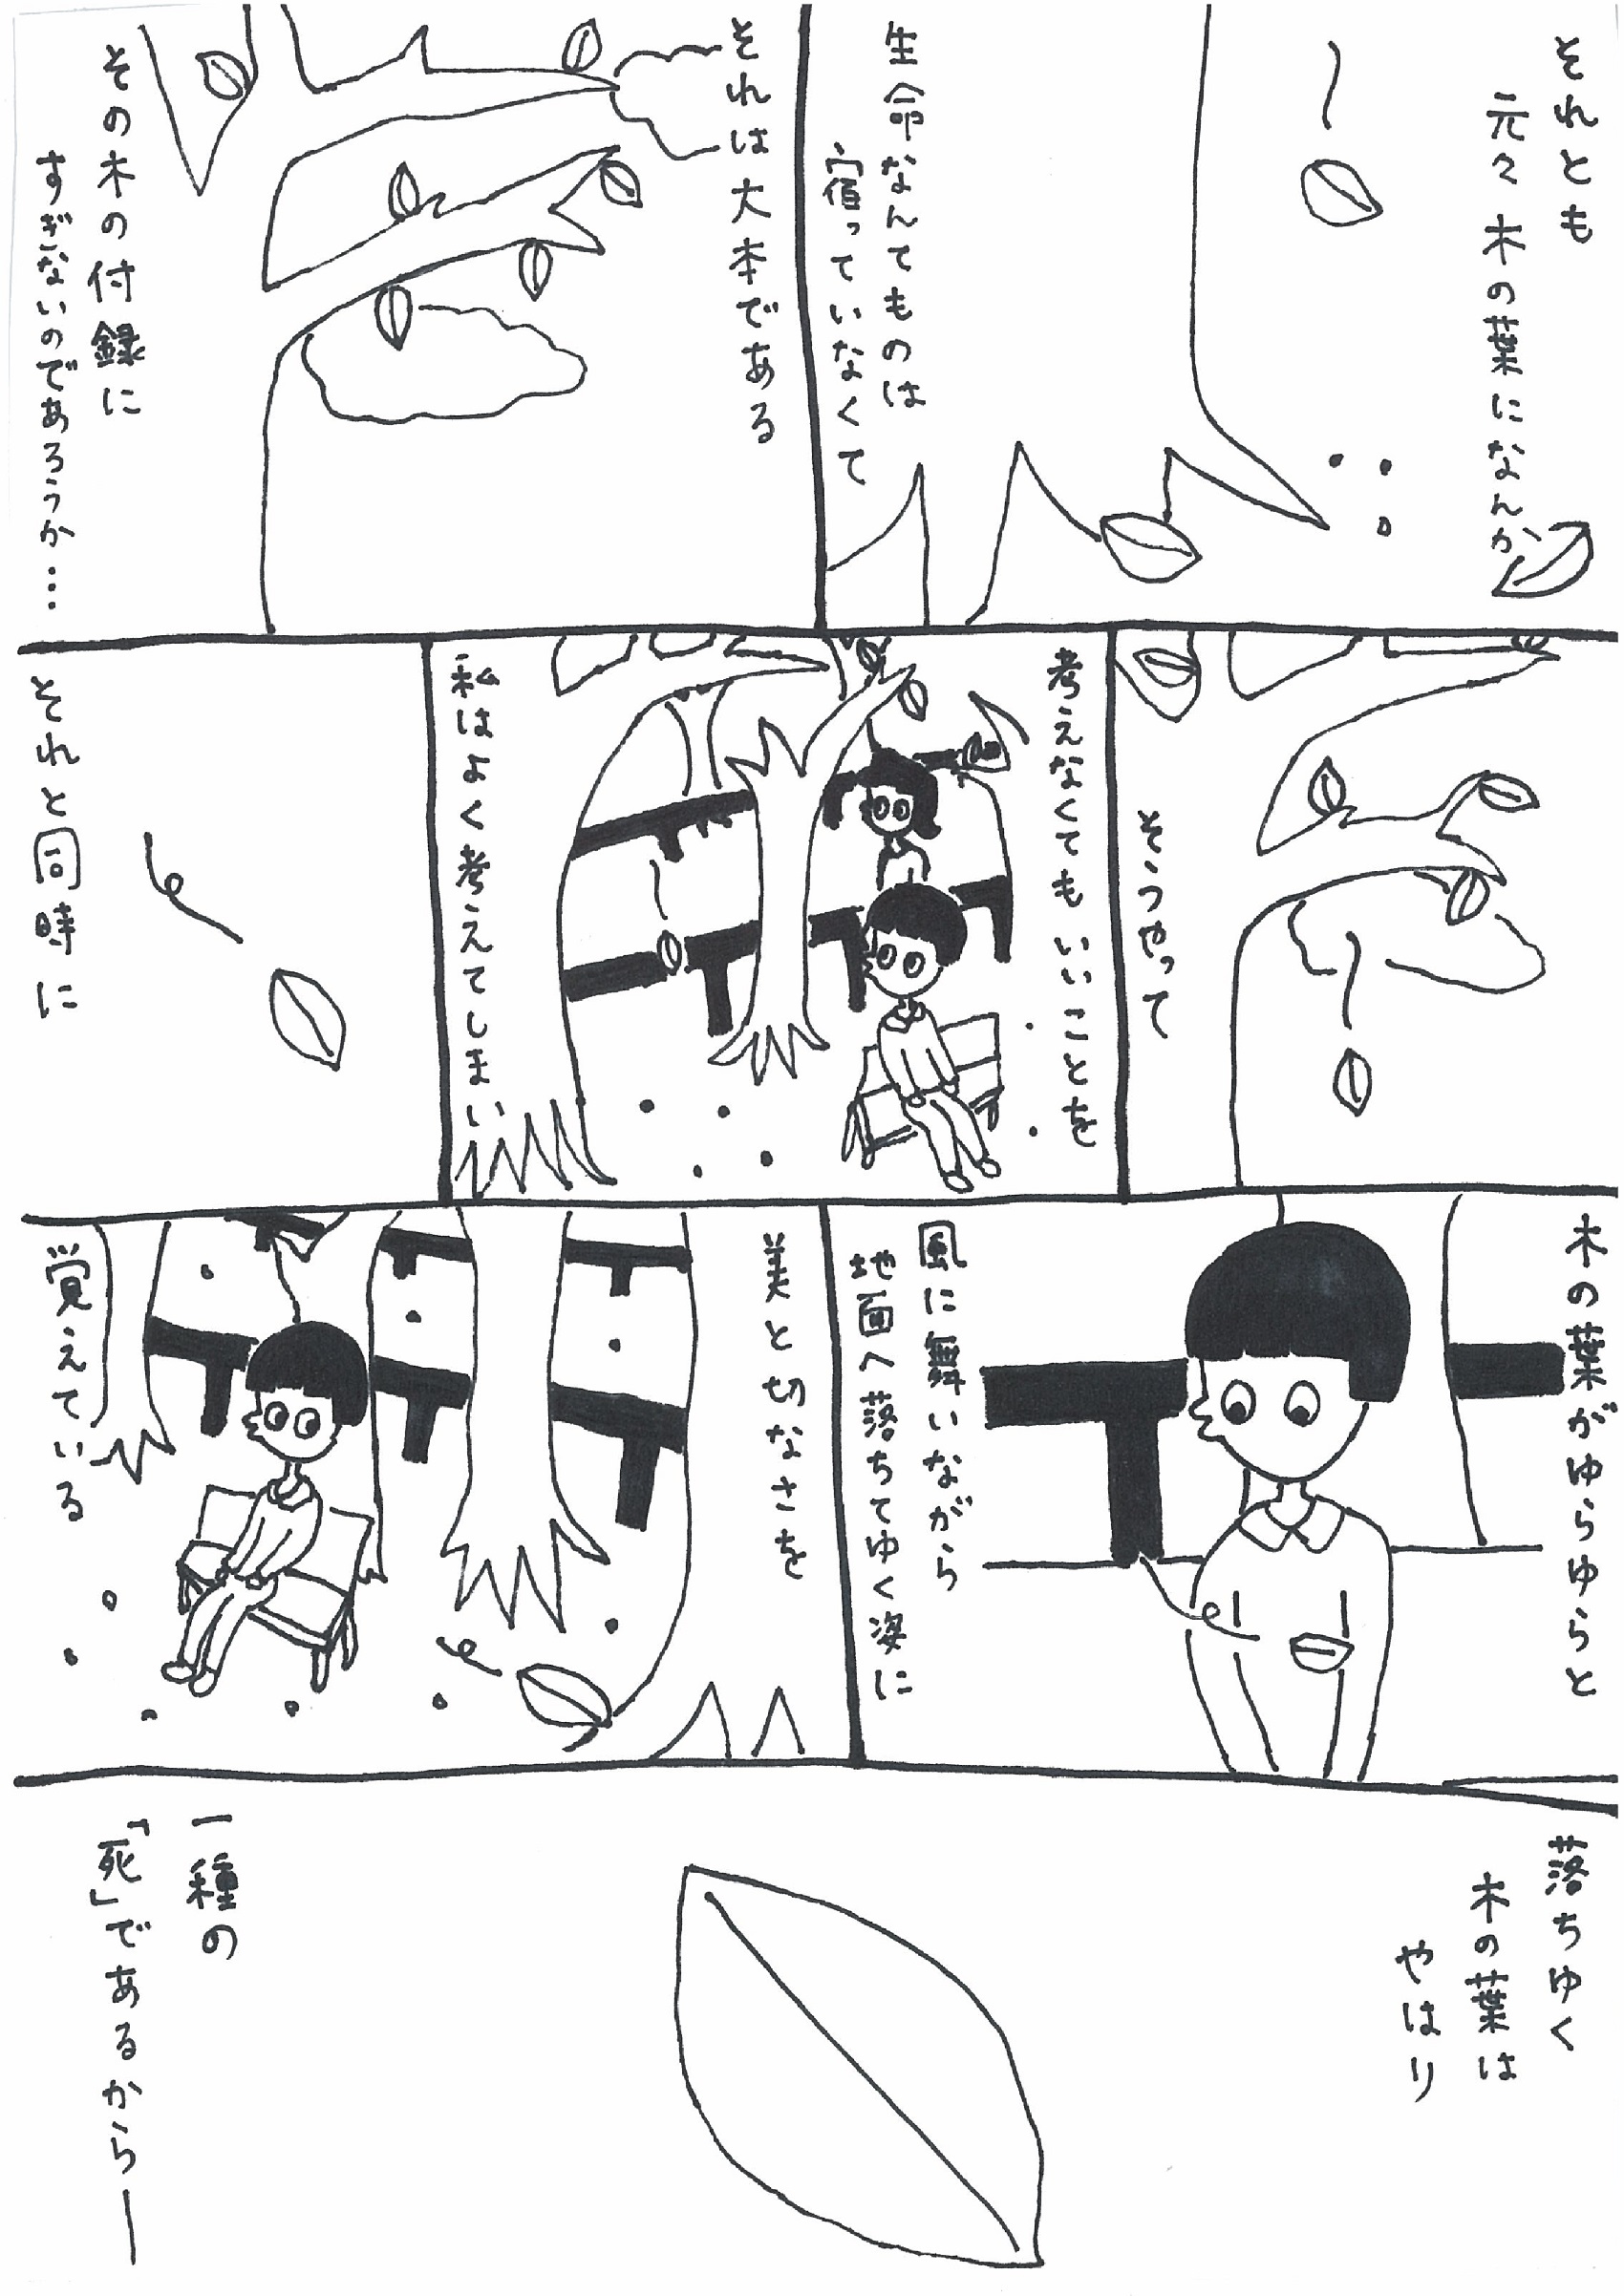 それとも
元々木の葉になんか
生命なんてものは
宿っていなくて
それは大本である
その木の付録に
すぎないのであろうか…
そうやって
考えなくてもいいことを
私はよく考えてしまい
それと同時に
木の葉がゆらゆらと
風に舞いながら
地面へ落ちてゆく姿に
美と切なさを
覚えている
落ちゆく
木の葉は
やはり
一種の
「死」であるから―